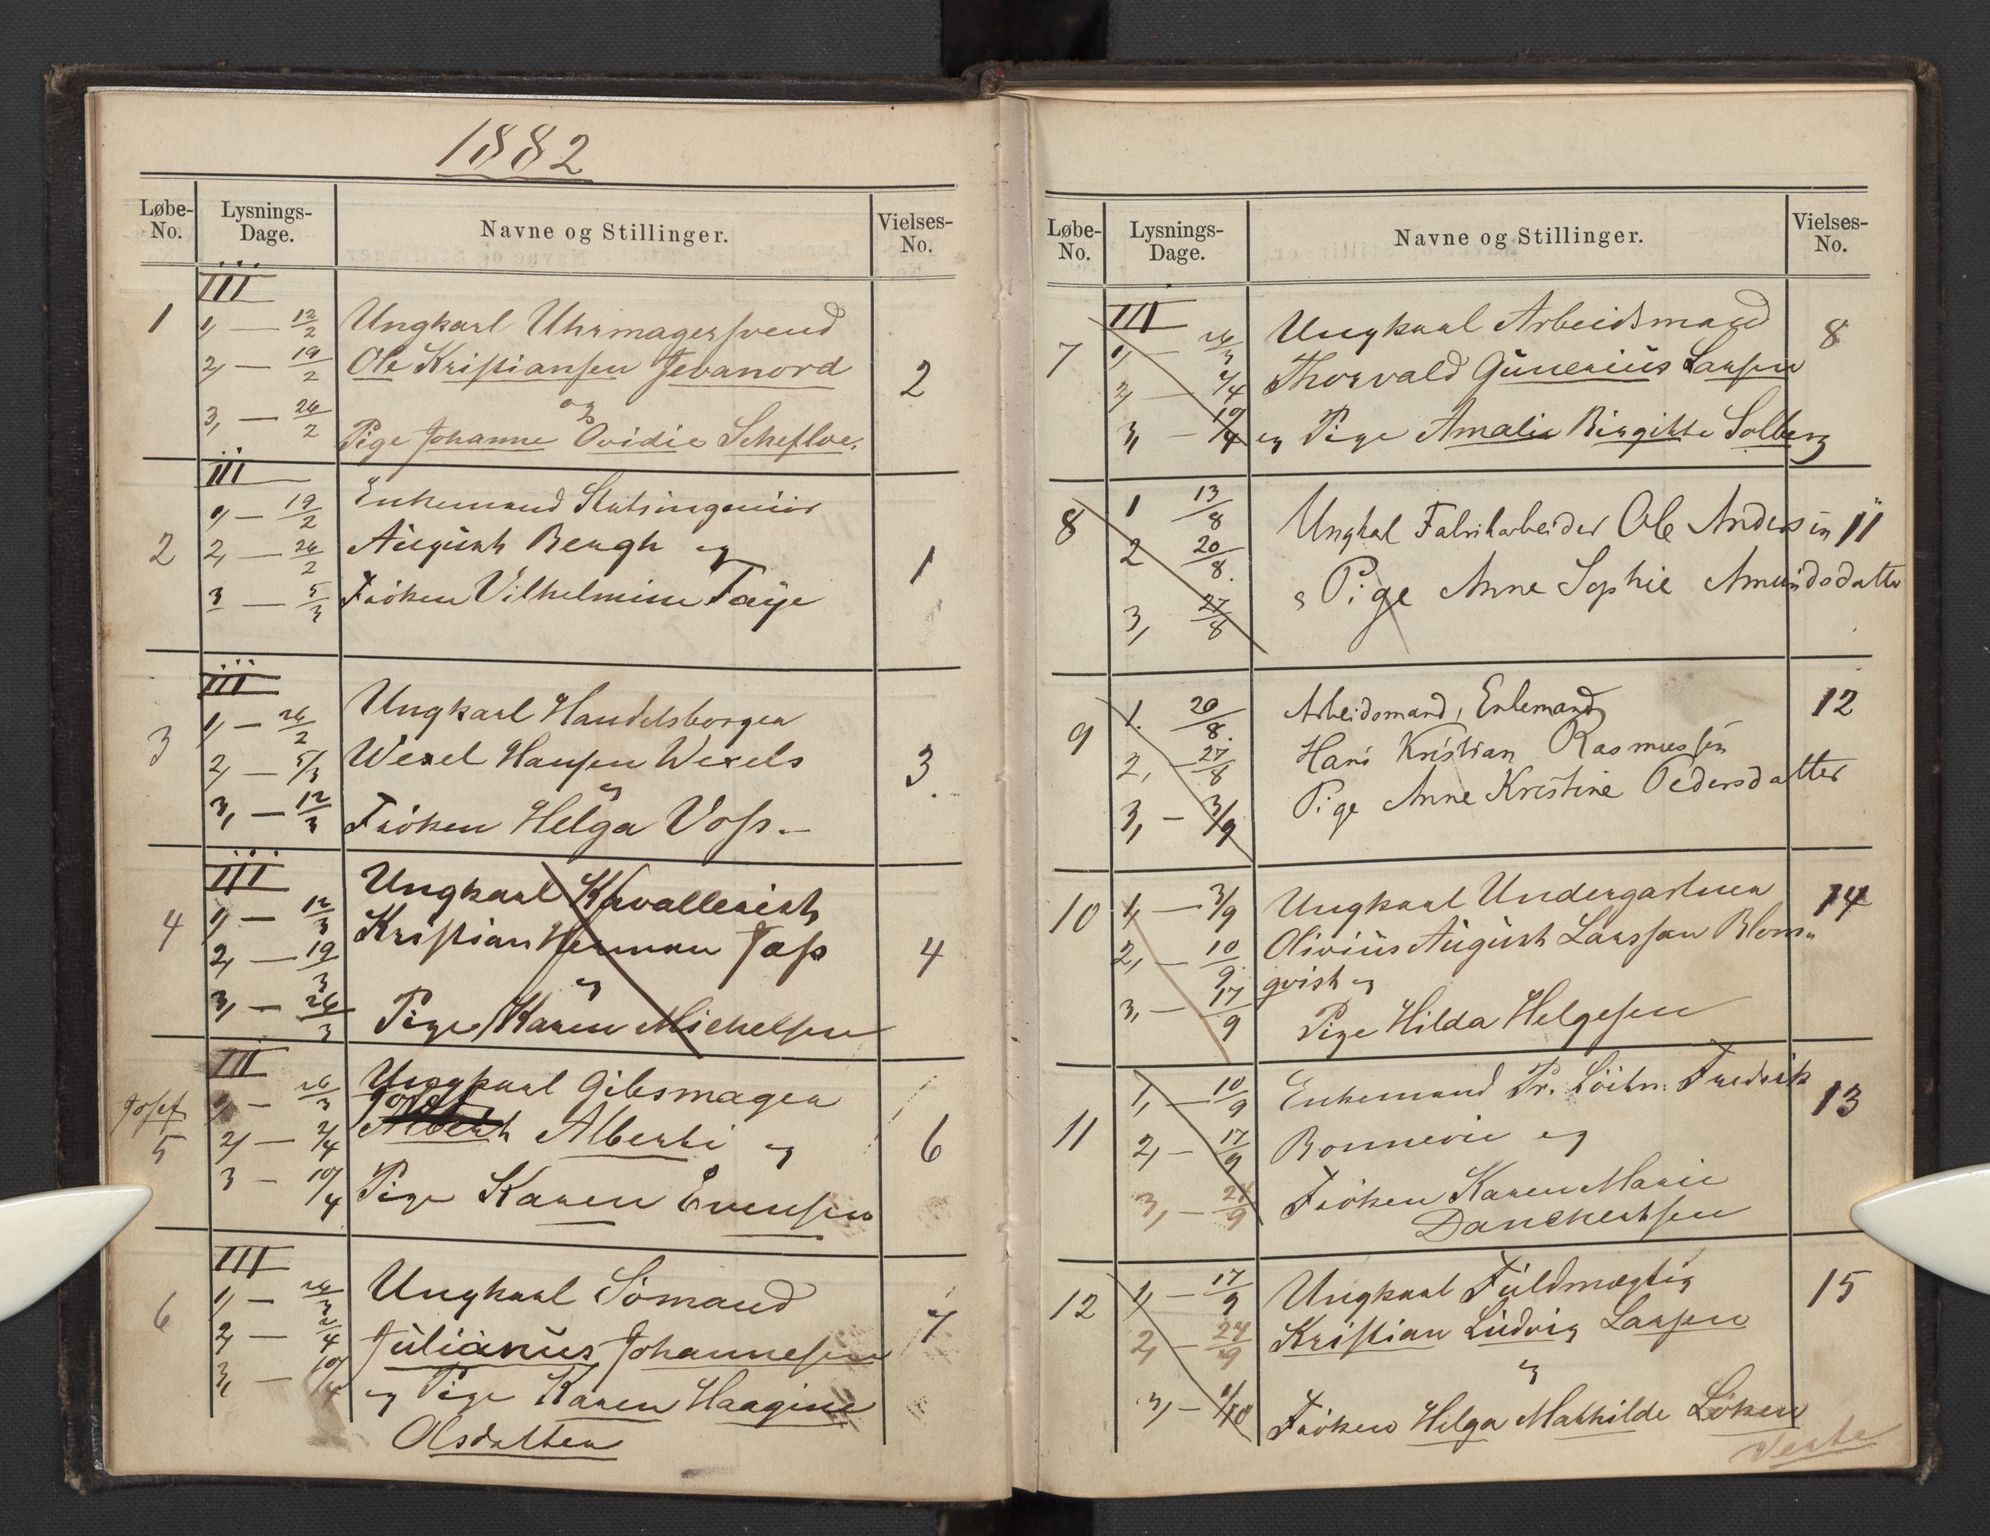 1882
Løbe-No. Lysnings-Dage. Navne og Stillinger. Vielses-No.
III
1 1, — 12/2 Ungkarl Uhrmagersvend
2, — 19/2 Ole Kristiansen Jevanord 2
3, — 26/2 og
Pige Johanne Ovidie Schefloe.
III
1, — 19/2 Enkemand Statsingeniör
2 2, — 26/2 August Bergh og 1
3 — 5/3 Fröken Vilhelmine Faye
III
3 1, — 26/2 Ungkarl Handelsborger
2, — 5/3 Wexel Hansen Wexels 3.
og
3, — 12/3 Fröken Helga Voss.—
III
4 1, — 12/3 Ungkarl Kavallerist
2, — 19/3 Kristian Herman 4
og
3, — 26/3 Pige Karen Michelsen
III
Josef 1, — 26/3 Ungkarl Gibsmager
Josef
5 2, — 2/4 Albert Alberti og 6
3 — 10/4 Pige Karen Evensen
III
6 1, — 26/3 Ungkarl Sömand
2, — 2/4 Julianus Johannesen 7
3, — 10/4 og Pige Karen Haagine
Olsdatter
Løbe-No. Lysnings-Dage. Navne og Stillinger. Vielses-No.
III
7 1, — 26/3 Ungkarl Arbeidsmand 8
2, — 2/4 Thorvald Gunerius Larsen
3, — 10/4 og Pige Amalie Birgitte Solberg
8 1 13/8 Ungkal Fabrikarbeider Ole Andersen 11
2 20/8. Pige Anne Sophie Amundsdatter
3, 27/8
9 1. 20/8. Arbeidsmand, Enkemand 12
2, — 27/8 Hans Kristian Rasmussen
3, — 3/9 Pige Anne Kristine Pedersdatter
10 1, — 3/9 Ungkarl Undergartner 14
2, — 10/9. Olivius August Larsson Blom-
qvist og
3, — 17/9 Pige Hilda Helgesen
1, — 10/9 Enkemand Pr. Löitn. Fredrik 13
11 2, — 17/9 Bonnevie og
3, — 24/9 Fröken Karen Marie
Danchertsen
12 1, — 17/9 Ungkarl Fuldmægtig 15
2, — 24/9 Kristian Ludvig Larsen
og
3, — 1/10 Fröken Helga Mathilde Löken